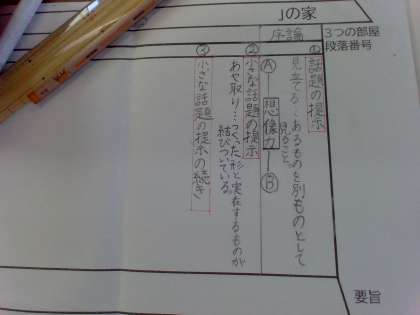 」の家
3つの部屋
段落番号
序論
①
話題の提示
見立てる…あるものを別ものとして
見ること。
Ⓐ 想像力 Ⓑ
②
小さな話題の提示
あや取り…つくった形と実在するものが
結びついている。
③
小さな話題の提示の続き
要旨